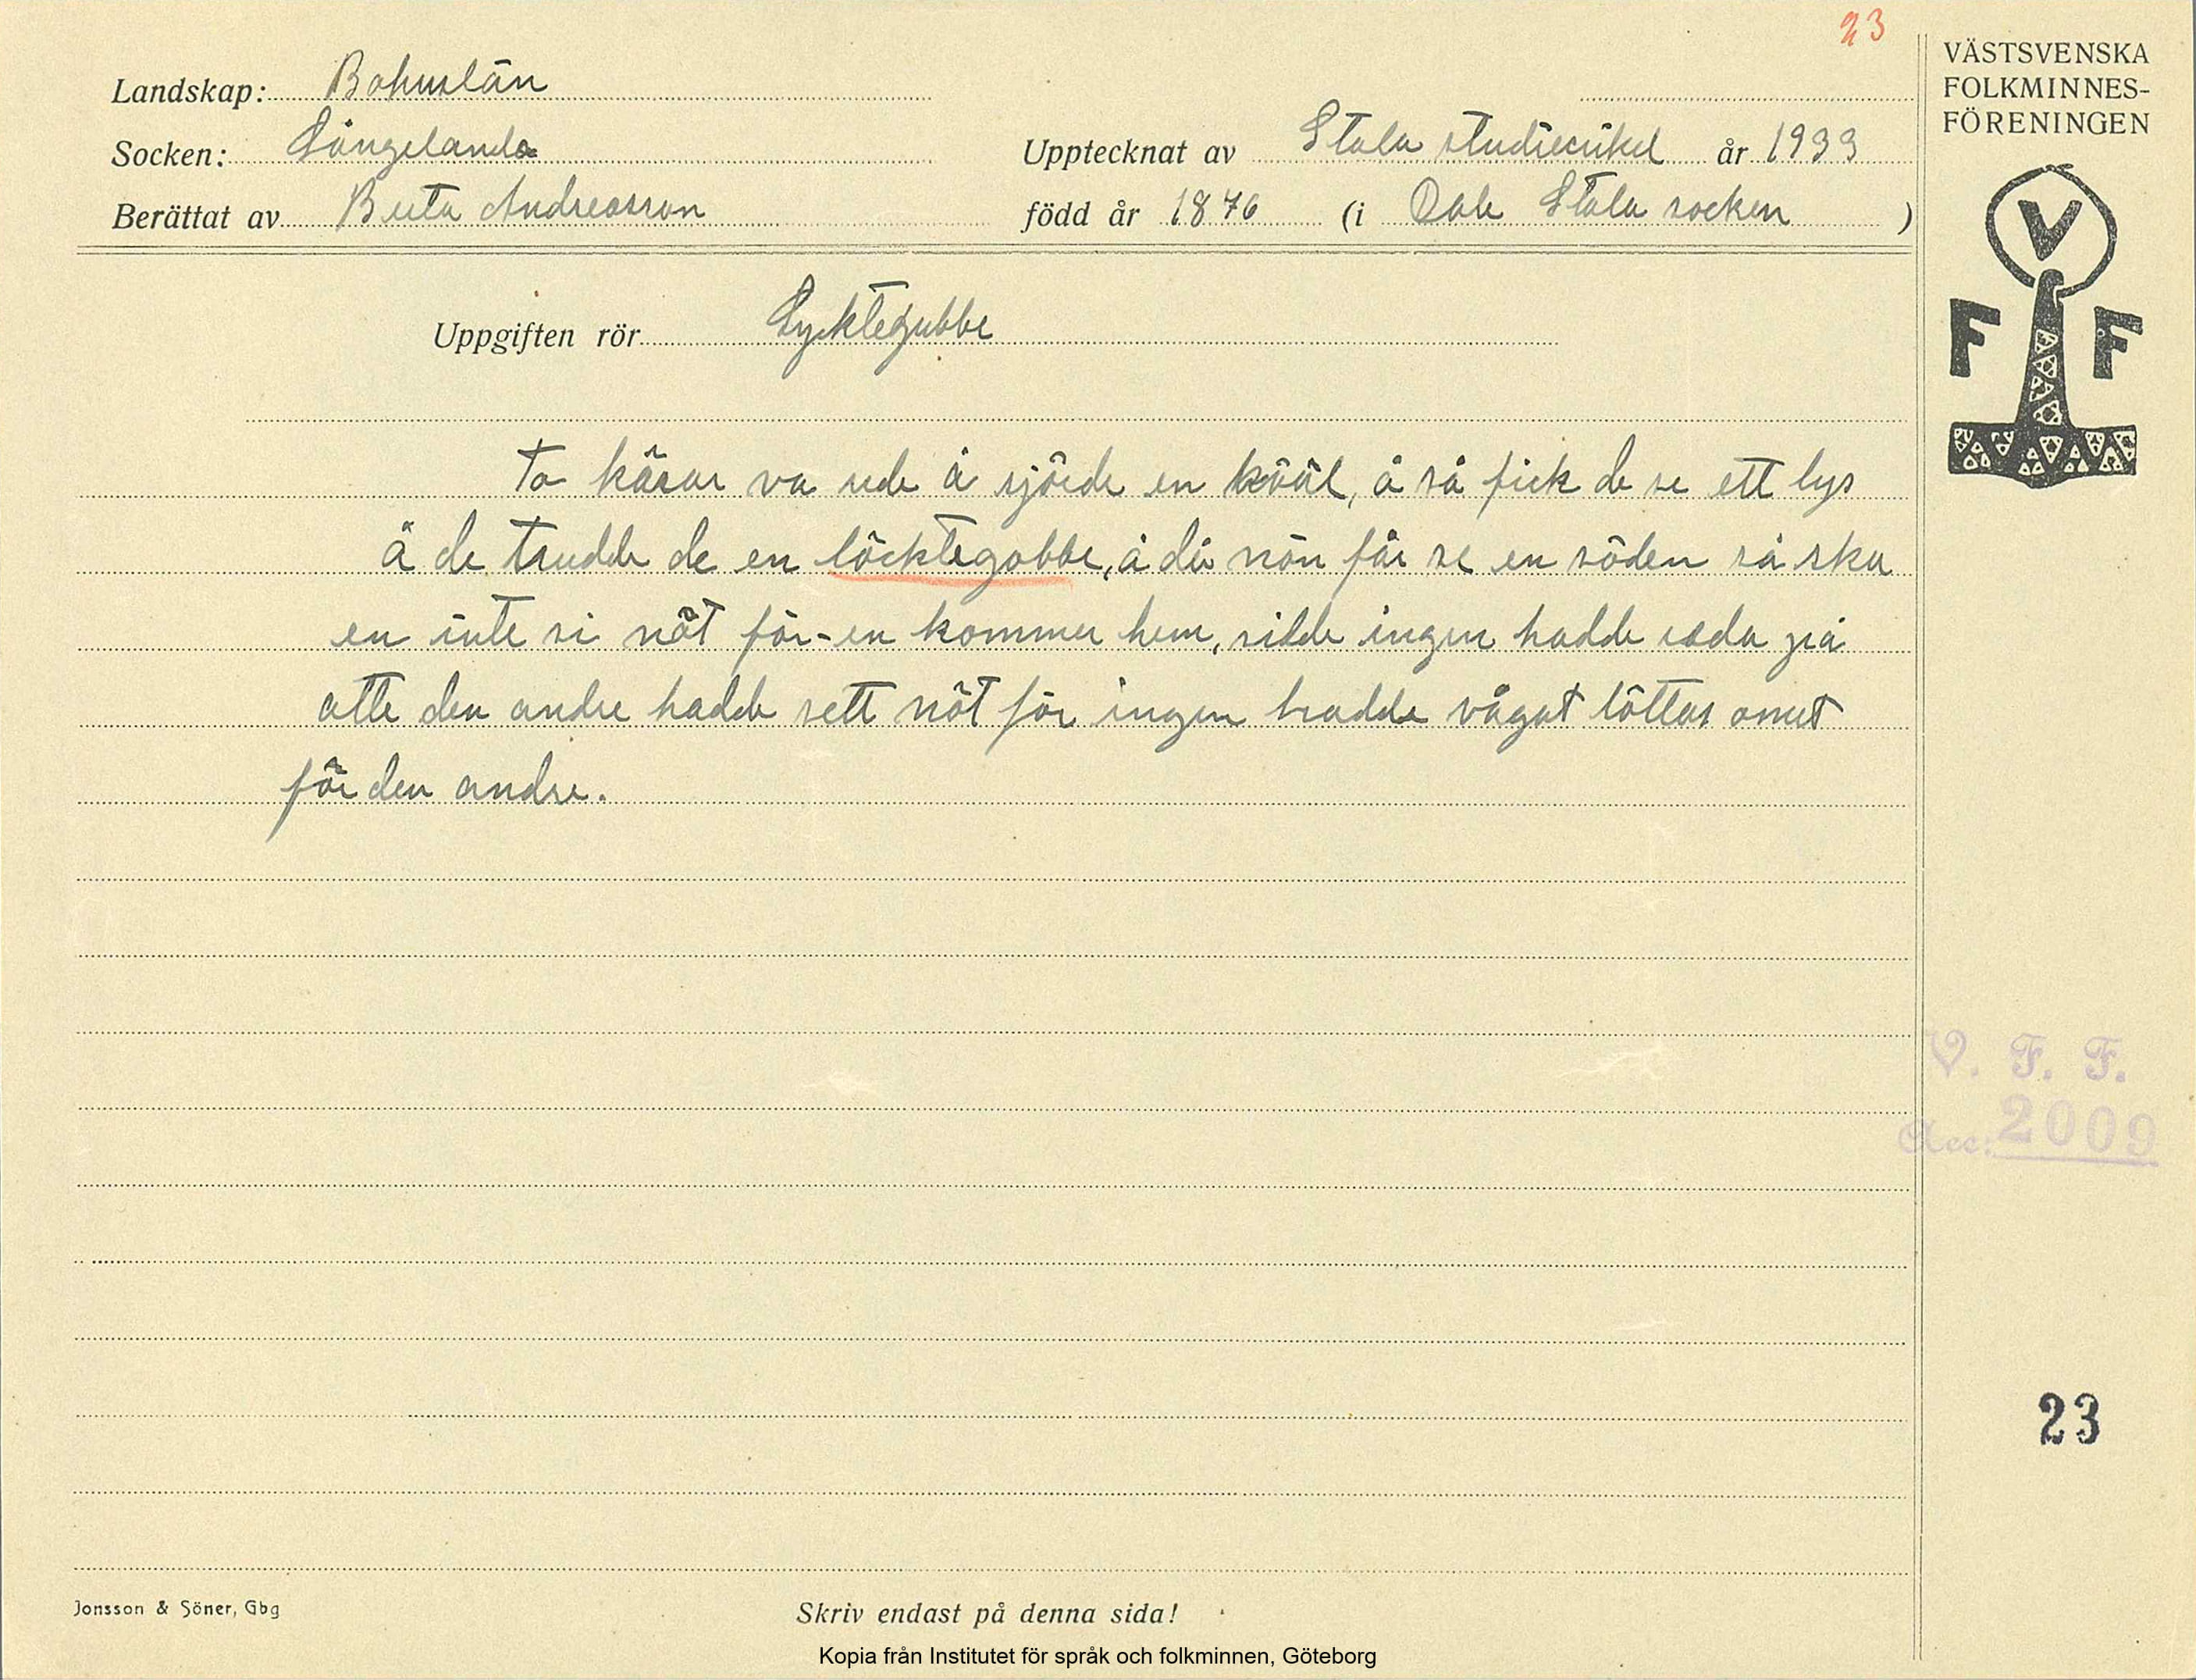 23
VÄSTSVENSKA
FOLKMINNES-
FÖRENINGEN
Landskap: Bohuslän
Socken: Långelanda
Upptecknat av Stala studiecirkel år 1933
Berättat av Berta Andreasson
född år 1876 (i Dale Stala socken )
V
F F
Uppgiften rör Lycktegubbe
To kärar va ude å sjörde en kväl, å så fick de se ett lys
å de trudde de en löcktegobbe, å då nön får se en söden så ska
en inte si nöt för-en kommer hem, ingen hadde reda på
atte den andre hadde sett nöt för ingen hadde vågat töttas omet
för den andre.
V. F. F.
Acc: 2009
23
Jonsson & Söner, Gbg
Skriv endast på denna sida!
Kopia från Institutet för språk och folkminnen, Göteborg